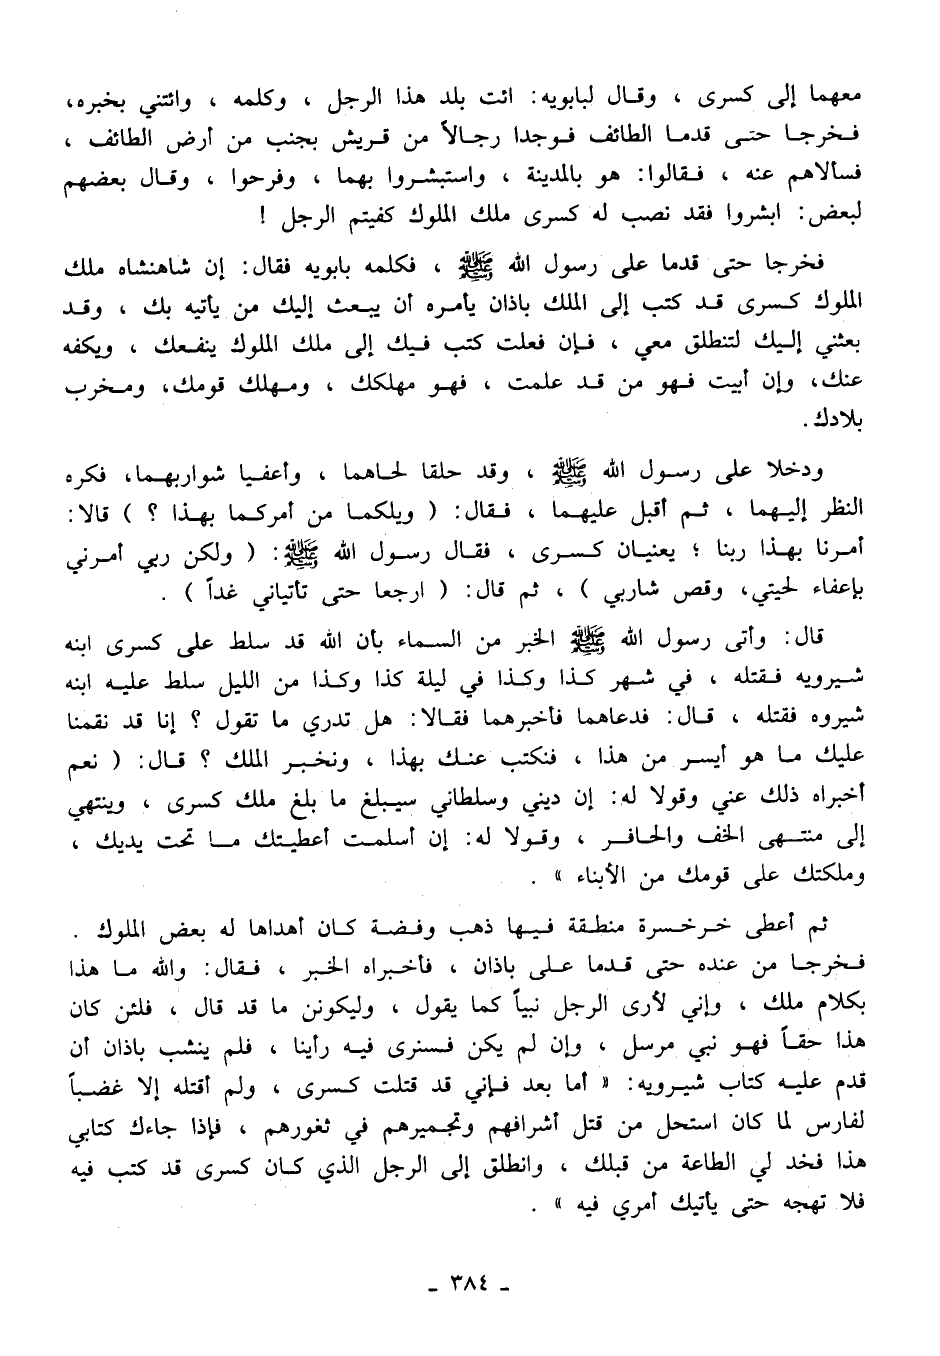 معهما إلى كسرى ، وقال لبابويه: ائت بلد هذا الرجل ، وكلمه ، وائتني بخبره،
فخرجا حتى قدما الطائف فوجدا رجالاً من قريش بجنب من أرض الطائف ،
فسألاهم عنه ، فقالوا: هو بالمدينة ، واستبشروا بهما ، وفرحوا ، وقال بعضهم
لبعض: ابشروا فقد نصب له كسرى ملك الملوك كفيتم الرجل !
فخرجا حتى قدما على رسول الله ﷺ ، فكلمه بابويه فقال: إن شاهنشاه ملك
الملوك كسرى قد كتب إلى الملك باذان يأمره أن يبعث إليك من يأتيه بك ، وقد
بعثني إليك لتنطلق معي ، فإن فعلت كتب فيك إلى ملك الملوك ينفعك ، ويكفه
عنك، وإن أبيت فهو من قد علمت ، فهو مهلكك ، ومهلك قومك، ومخرب
بلادك.
ودخلا على رسول الله ﷺ ، وقد حلقا لحاهما ، وأعفيا شواربهما، فكره
النظر إليهما ، ثم أقبل عليهما ، فقال: ( ويلكما من أمركما بهذا ؟ ) قالا:
أمرنا بهذا ربنا ؛ يعنيان كسرى ، فقال رسول الله ﷺ: ( ولكن ربي أمرني
بإعفاء لحيتي، وقص شاربي ) ، ثم قال: ( ارجعا حتى تأتياني غداً ) .
قال: وأتى رسول الله ﷺ الخبر من السماء بأن الله قد سلط على كسرى ابنه
شيرويه فقتله ، في شهر كذا وكذا في ليلة كذا وكذا من الليل سلط عليه ابنه
شيروه فقتله ، قال: فدعاهما فأخبرهما فقالا: هل تدري ما تقول ؟ إنا قد نقمنا
عليك ما هو أيسر من هذا ، فنكتب عنك بهذا ، ونخبر الملك ؟ قال: ( نعم
أخبراه ذلك عني وقولا له: إن ديني وسلطاني سيبلغ ما بلغ ملك كسرى ، وينتهي
إلى منتهى الخف والحافر ، وقولا له: إن أسلمت أعطيتك ما تحت يديك ،
وملكتك على قومك من الأبناء » .
ثم أعطى خرخسرة منطقة فيها ذهب وفضة كان أهداها له بعض الملوك .
فخرجا من عنده حتى قدما على باذان ، فأخبراه الخبر ، فقال: والله ما هذا
بكلام ملك ، وإني لأرى الرجل نبياً كما يقول ، وليكونن ما قد قال ، فلئن كان
هذا حقاً فهو نبي مرسل ، وإن لم يكن فسنرى فيه رأينا ، فلم ينشب باذان أن
قدم عليه كتاب شيرويه: « أما بعد فإني قد قتلت كسرى ، ولم أقتله إلا غضباً
لفارس لما كان استحل من قتل أشرافهم وتجميرهم في ثغورهم ، فإذا جاءك كتابي
هذا فخد لي الطاعة من قبلك ، وانطلق إلى الرجل الذي كان كسرى قد كتب فيه
فلا تهجه حتى يأتيك أمري فيه » .
ـ ٣٨٤ ـ